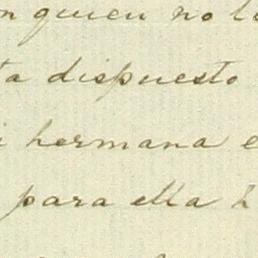 quien no lo
ta dispuesto
i hermana e
para ella h